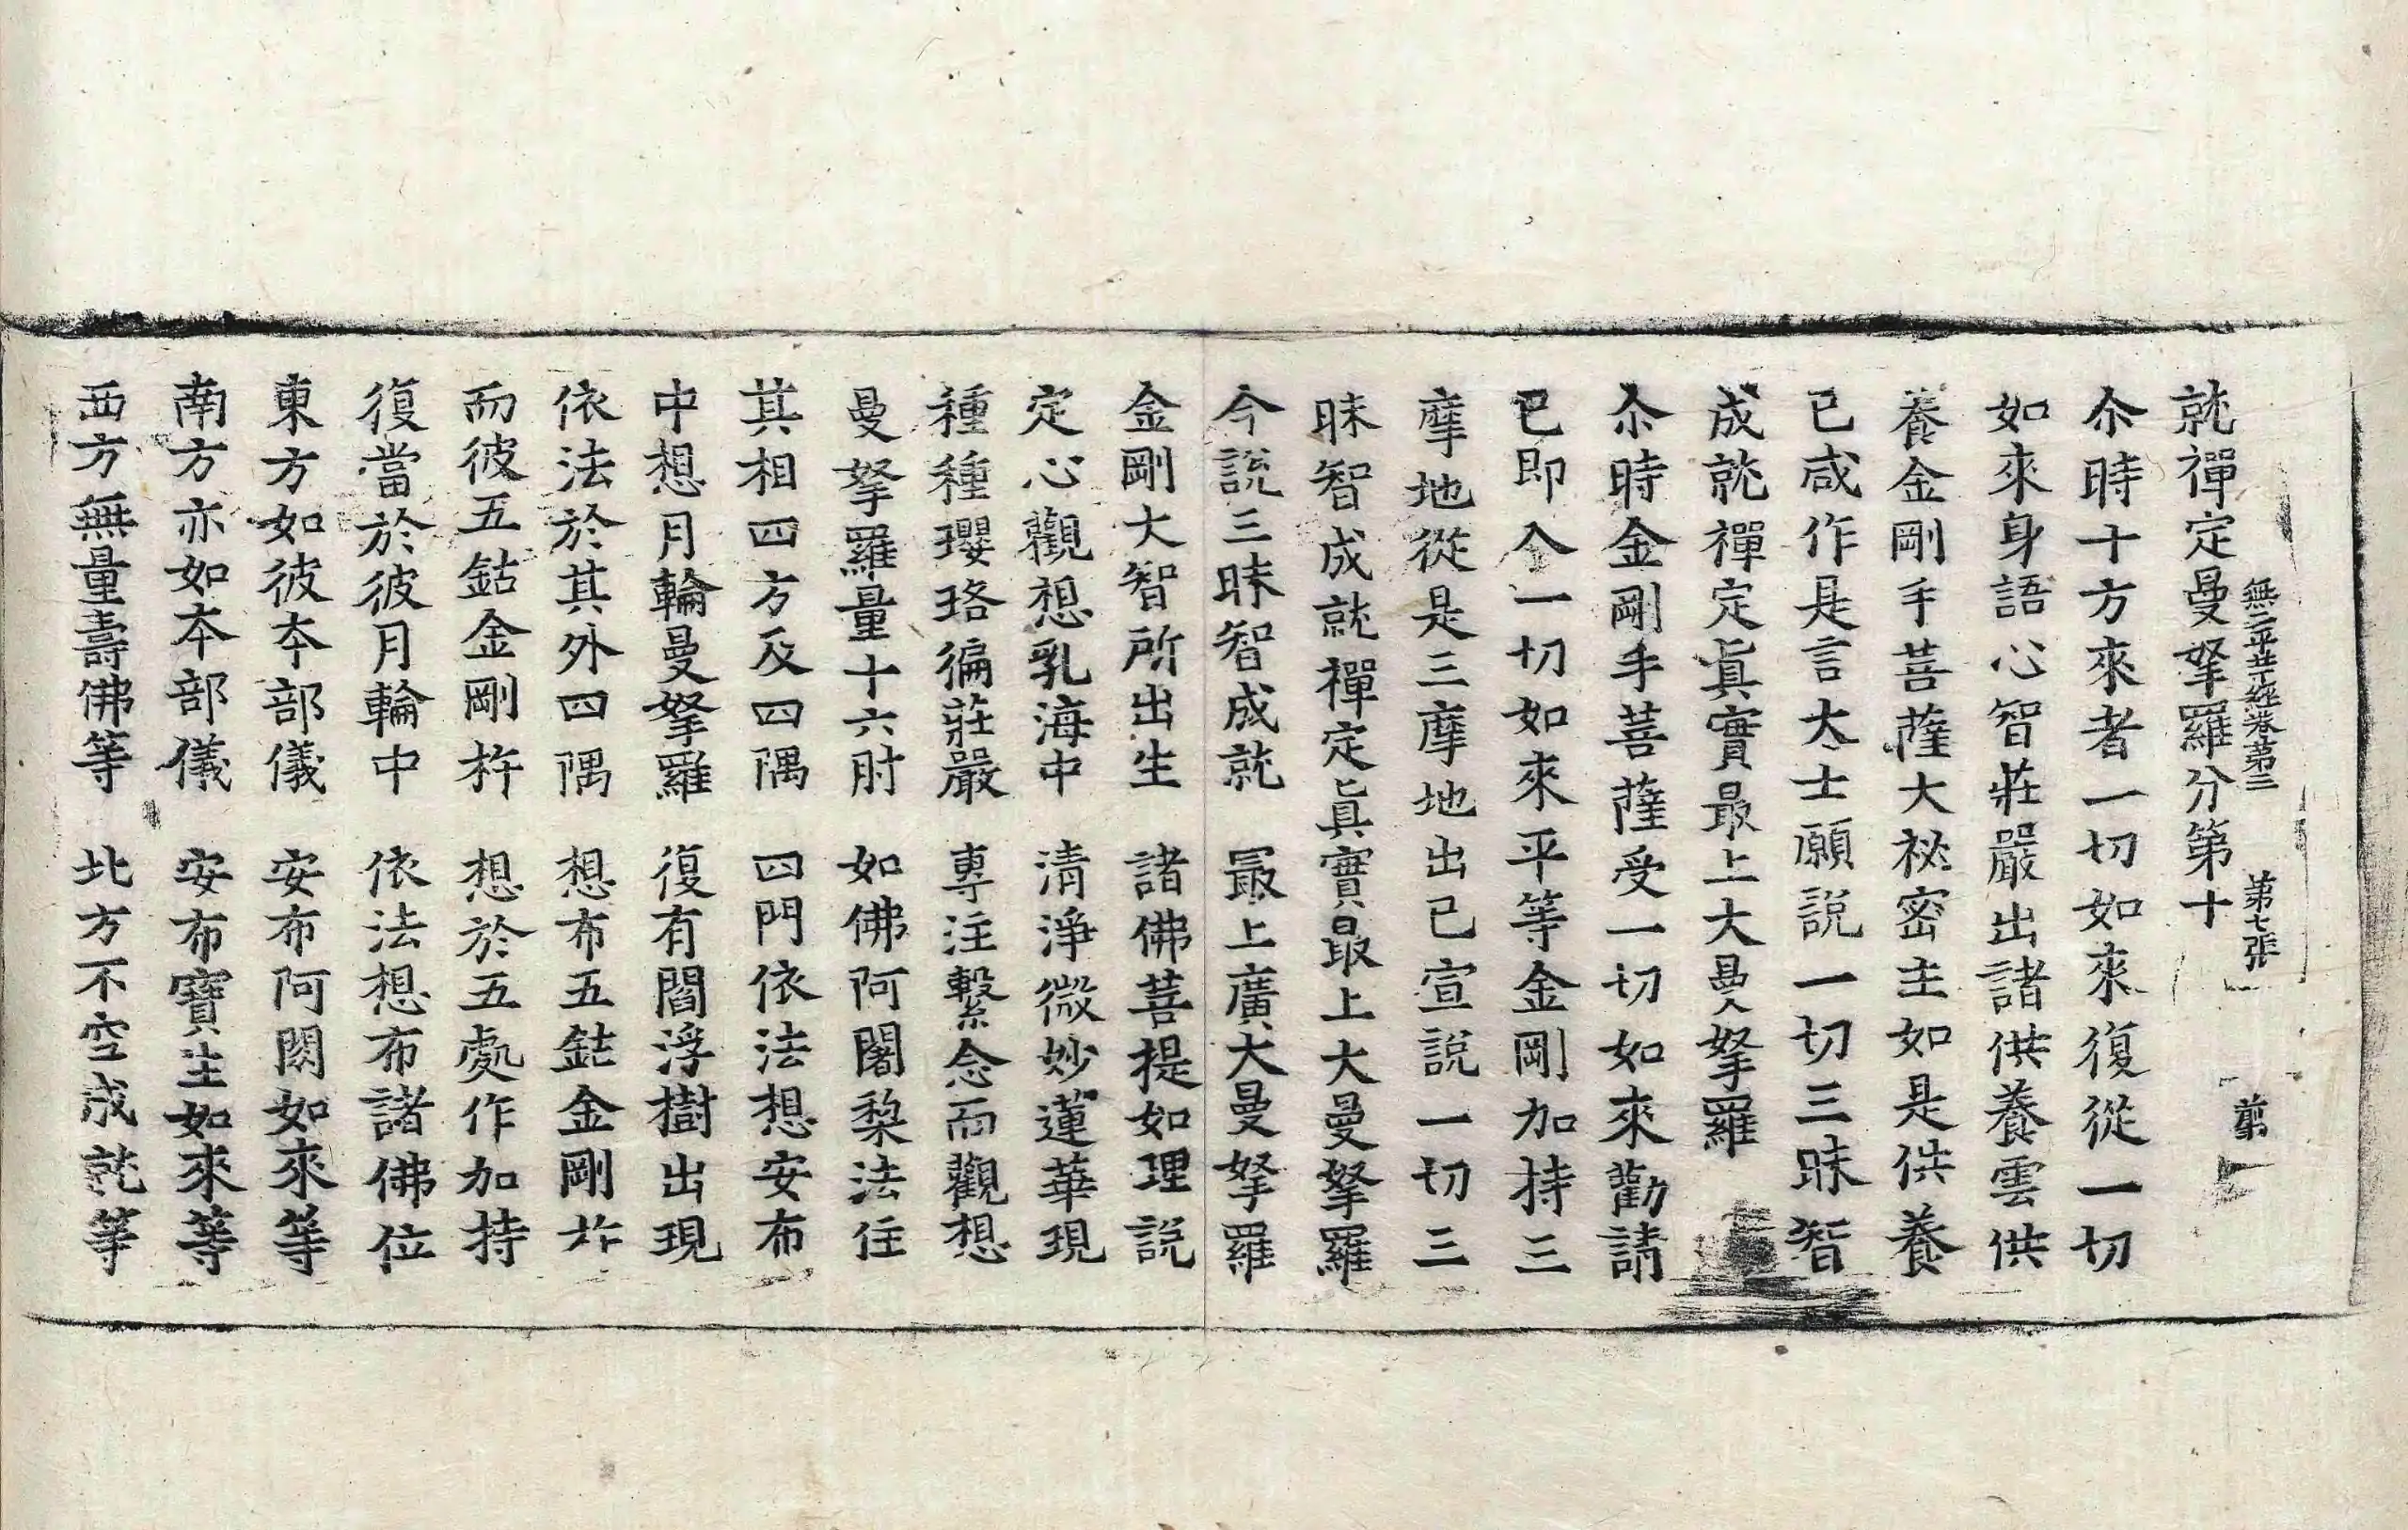 無二平䓁經卷第三 第七張 前
就禪定曼拏羅分第十
尒時十方來者一切如來復從一切
如來身語心智莊嚴出諸供養雲供
養金剛手菩薩大祕密主如是供養
已咸作是言大士願說一切三昧智
成就禪定眞實最上大曼拏羅
尒時金剛手菩薩受一切如來勸請
已即入一切如來平等金剛加持三
摩地從是三摩地出已宣說一切三
昧智成就禪定眞實最上大曼拏羅
今說三昧智成就 最上廣大曼拏羅
金剛大智所出生 諸佛菩提如理說
定心觀想乳海中 清淨微妙蓮華現
種種瓔珞徧莊嚴 專注繫念而觀想
曼拏羅量十六肘 如佛阿闍棃法住
其相四方及四隅 四門依法想安布
中想月輪曼拏羅 復有閻浮樹出現
依法於其外四隅 想布五鈷金剛杵
而彼五鈷金剛杵 想於五處作加持
復當於彼月輪中 依法想布諸佛位
東方如彼本部儀 安布阿閦如來等
南方亦如本部儀 安布寶生如來等
西方無量壽佛等 北方不空成就等